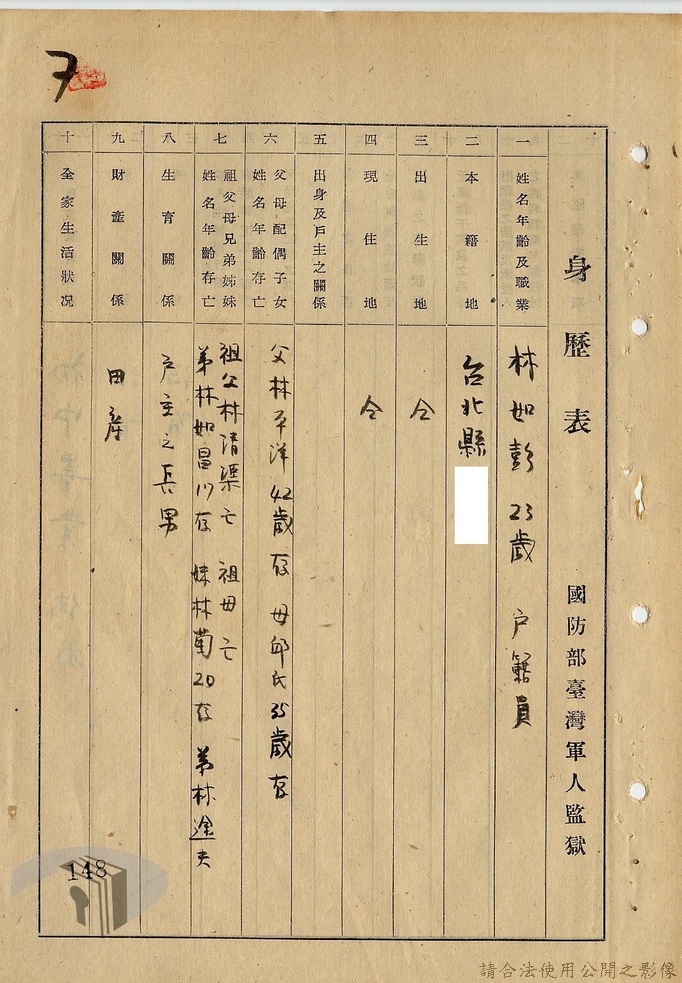 身歷表 國防部臺灣軍人監獄
一 姓名年齡及職業 林如彭 23歲 戶籍員
二 本籍地 台北縣
三 出生地 仝
四 現住地 仝
五 出身及戶主之關係
六 父母配偶子女姓名年齡存亡 父林平洋42歲存 母邱氏35歲存
七 祖父母兄弟姊妹姓名年齡存亡 祖父林清渠亡 祖母亡
弟林如昌17存 妹林菊20存 弟林途夫
八 生育關係 戶主之長男
九 財產關係 田產
十 全家生活狀况
148
請合法使用公開之影像